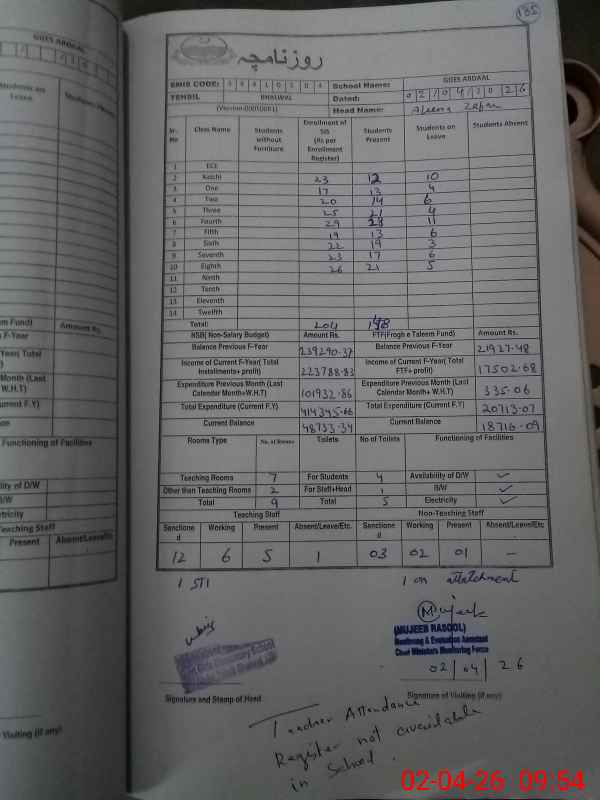 135
روزنامچہ
EMIS CODE: School Name: GGES ABDAAL
TEHSIL BHALWAL Dated: 02/04/2026
(Version-D001D0R1) Head Name:
Sr. No Class Name Students without Furniture Enrollment of SIS (As per Enrollment Register) Students Present Students on Leave Students Absent
1 ECE
2 Katchi 23 12 10
3 One 17 13 4
4 Two 20 14 6
5 Three 25 21 4
6 Fourth 29 11
7 Fifth 19 13 6
8 Sixth 22 19 3
9 Seventh 23 17 6
10 Eighth 26 21 5
11 Ninth
12 Tenth
13 Eleventh
14 Twelfth
Total: 204 148
NSB( Non-Salary Budget) Amount Rs. FTF(Frogh e Taleem Fund) Amount Rs.
Balance Previous F-Year 239290-37 Balance Previous F-Year 21927-48
Income of Current F-Year( Total Installments+ profit) 223788-83 Income of Current F-Year( Total FTF+ profit) 17502-68
Expenditure Previous Month (Last Calendar Month+W.H.T) 101932-86 Expenditure Previous Month (Last Calendar Month+ W.H.T) 335-06
Total Expenditure (Current F.Y) 414345-66 Total Expenditure (Current F.Y) 20713-07
Current Balance 48733-34 Current Balance 18716-09
Rooms Type No. of Rooms Toilets No of Toilets Functioning of Facilities
Teching Rooms 7 For Students 4 Availability of D/W ✓
Other than Teching Rooms 2 For Staff+Head 1 B/W ✓
Total 9 Total 5 Electricity ✓
Teaching Staff Non-Teaching Staff
Sanctioned Working Present Absent/Leave/Etc. Sanctioned Working Present Absent/Leave/Etc
12 6 5 1 03 02 01 –
1 STI 1 on attatchment
Mujeeb
(MUJEEB RASOOL)
Monitoring & Evaluation Assistant
Chief Ministers Monitoring Force
02/04/26
Signature and Stamp of Head Signature of Visiting (if any)
Teacher Attendance
Register not available
in School.
02-04-26 09:54